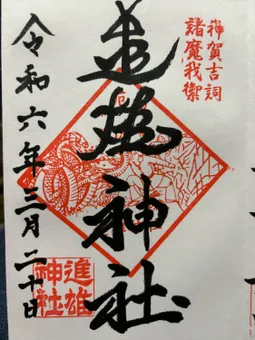 神賀吉詞
諸魔我禦
進雄神社
令和六年三月二十日
進雄
神社